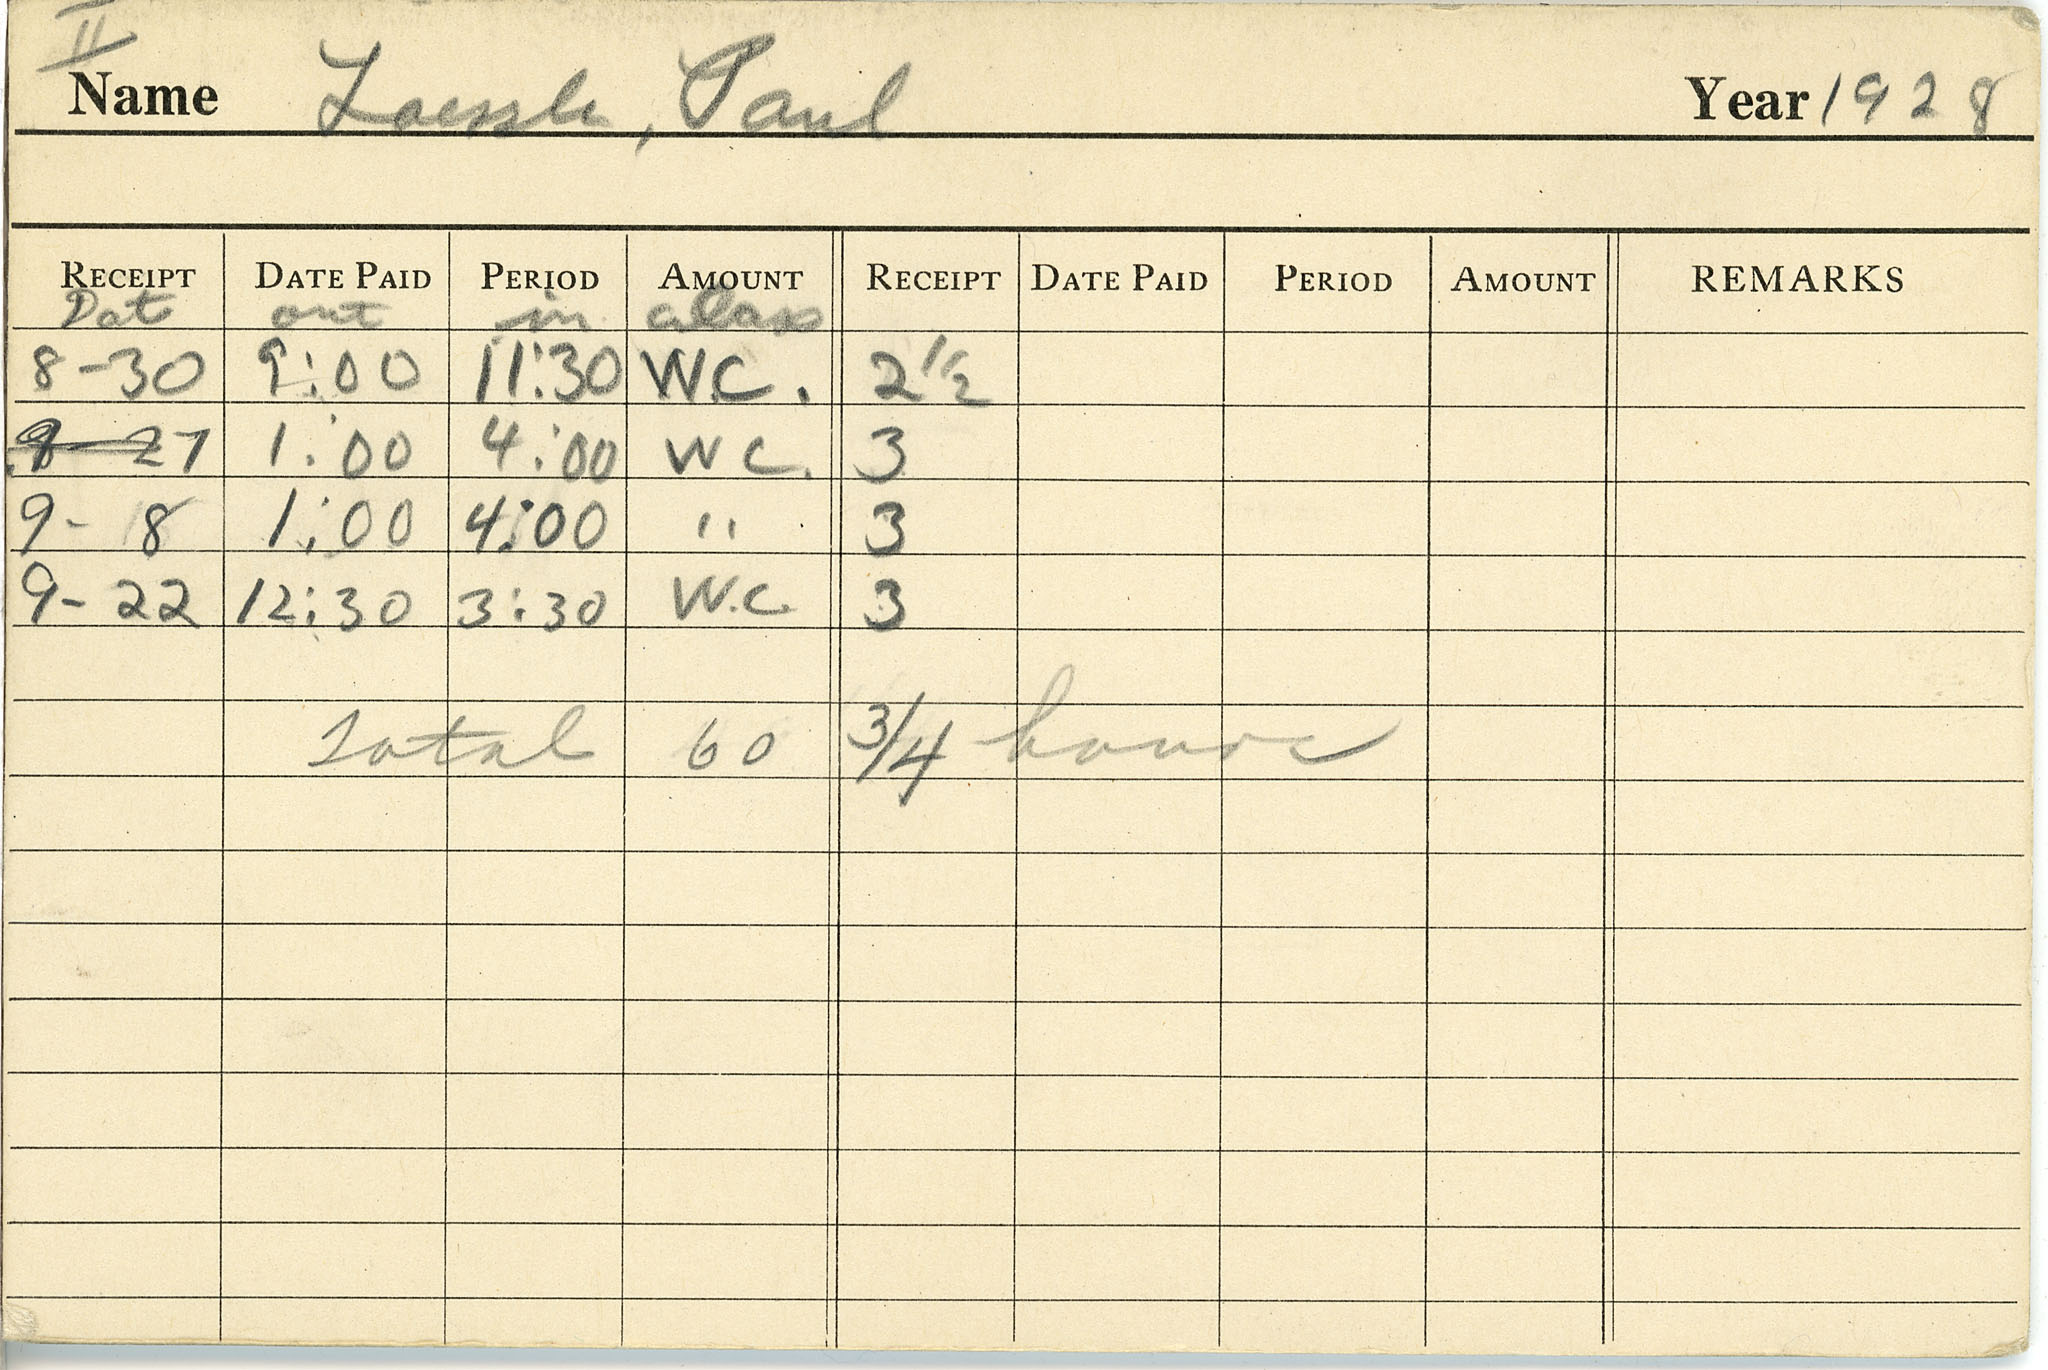 II
Name Loessle, Paul Year 1928
RECEIPT DATE PAID PERIOD AMOUNT RECEIPT DATE PAID PERIOD AMOUNT REMARKS
Date out in class
8-30 9:00 11:30 W.C. 2 1/2
27 1:00 4:00 W C. 3
9- 8 1:00 4:00 " 3
9- 22 12:30 3:30 W.C. 3
Total 60 3/4 hours